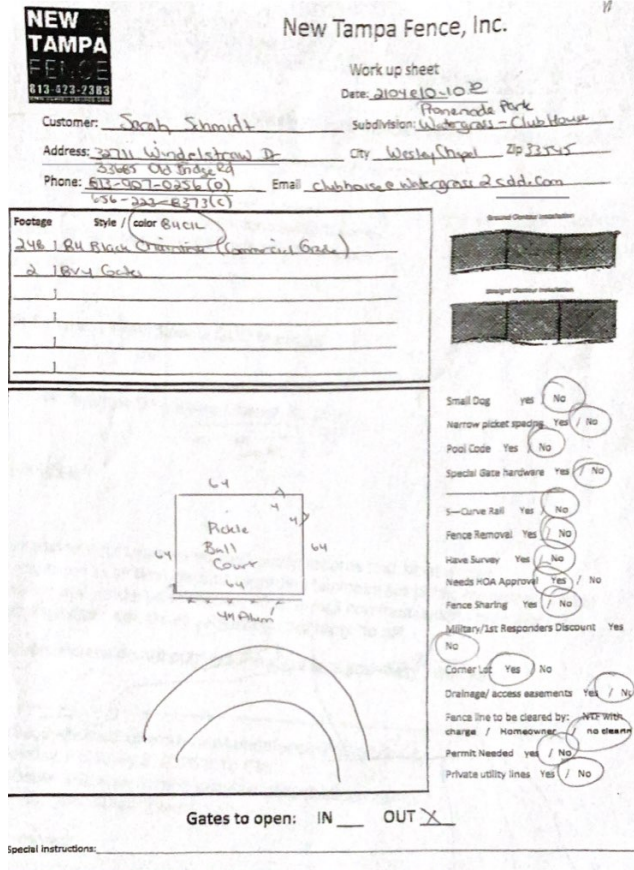 NEW
TAMPA
FENCE
813-423-2383
New Tampa Fence, Inc.
Work up sheet
Date:
Promenade Park
Customer: Sarah Shmidt
Subdivision: Watergrass - Club House
Address: 32711 Windelstraw Dr
City Wesley Chapel Zip 33545
33665 Old
Phone: 813-907-0256 (o) Email clubhouse@watergrass2cdd.com
656-223-8373 (c)
Footage Style / color Black
248 / Black Chainlink
2 / Gates
Ground Contour Installation
Straight Contour Installation
Small Dog yes / No
Narrow picket spacing Yes / No
Pool Code Yes / No
Special Gate hardware Yes / No
S-Curve Rail Yes / No
Fence Removal Yes / No
Have Survey Yes / No
Needs HOA Approval Yes / No
Fence Sharing Yes / No
Military/1st Responders Discount Yes
No
Corner Lot Yes / No
Drainage/ access easements Yes / No
Fence line to be cleared by: NTF with
charge / Homeowner / no clearin
Permit Needed yes / No
Private utility lines Yes / No
64
4
4
64
Pickle
Ball
Court
64
64
44 Alum
Gates to open: IN ___ OUT X
Special instructions: